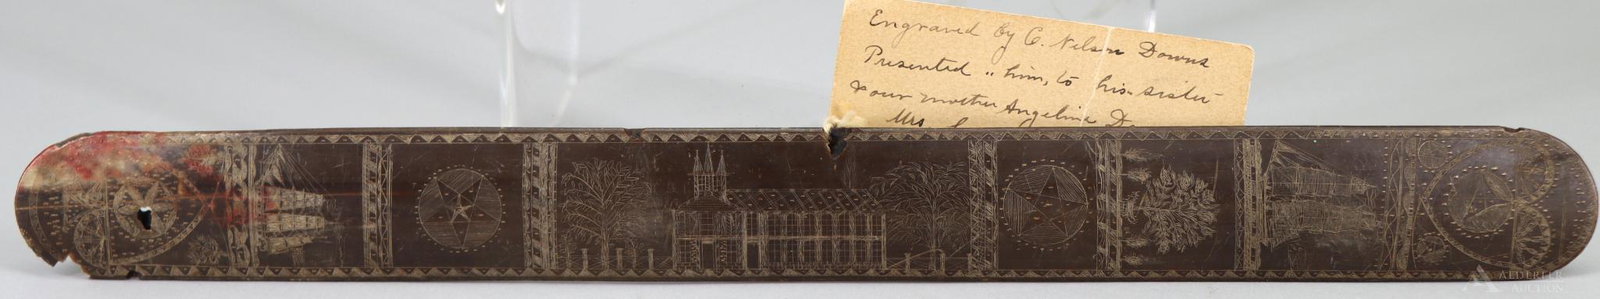 Engraved by C. Nelson Downs
Presented " him, to his sister
our mother Angeline D.
Mrs
ALDERFER
AUCTION